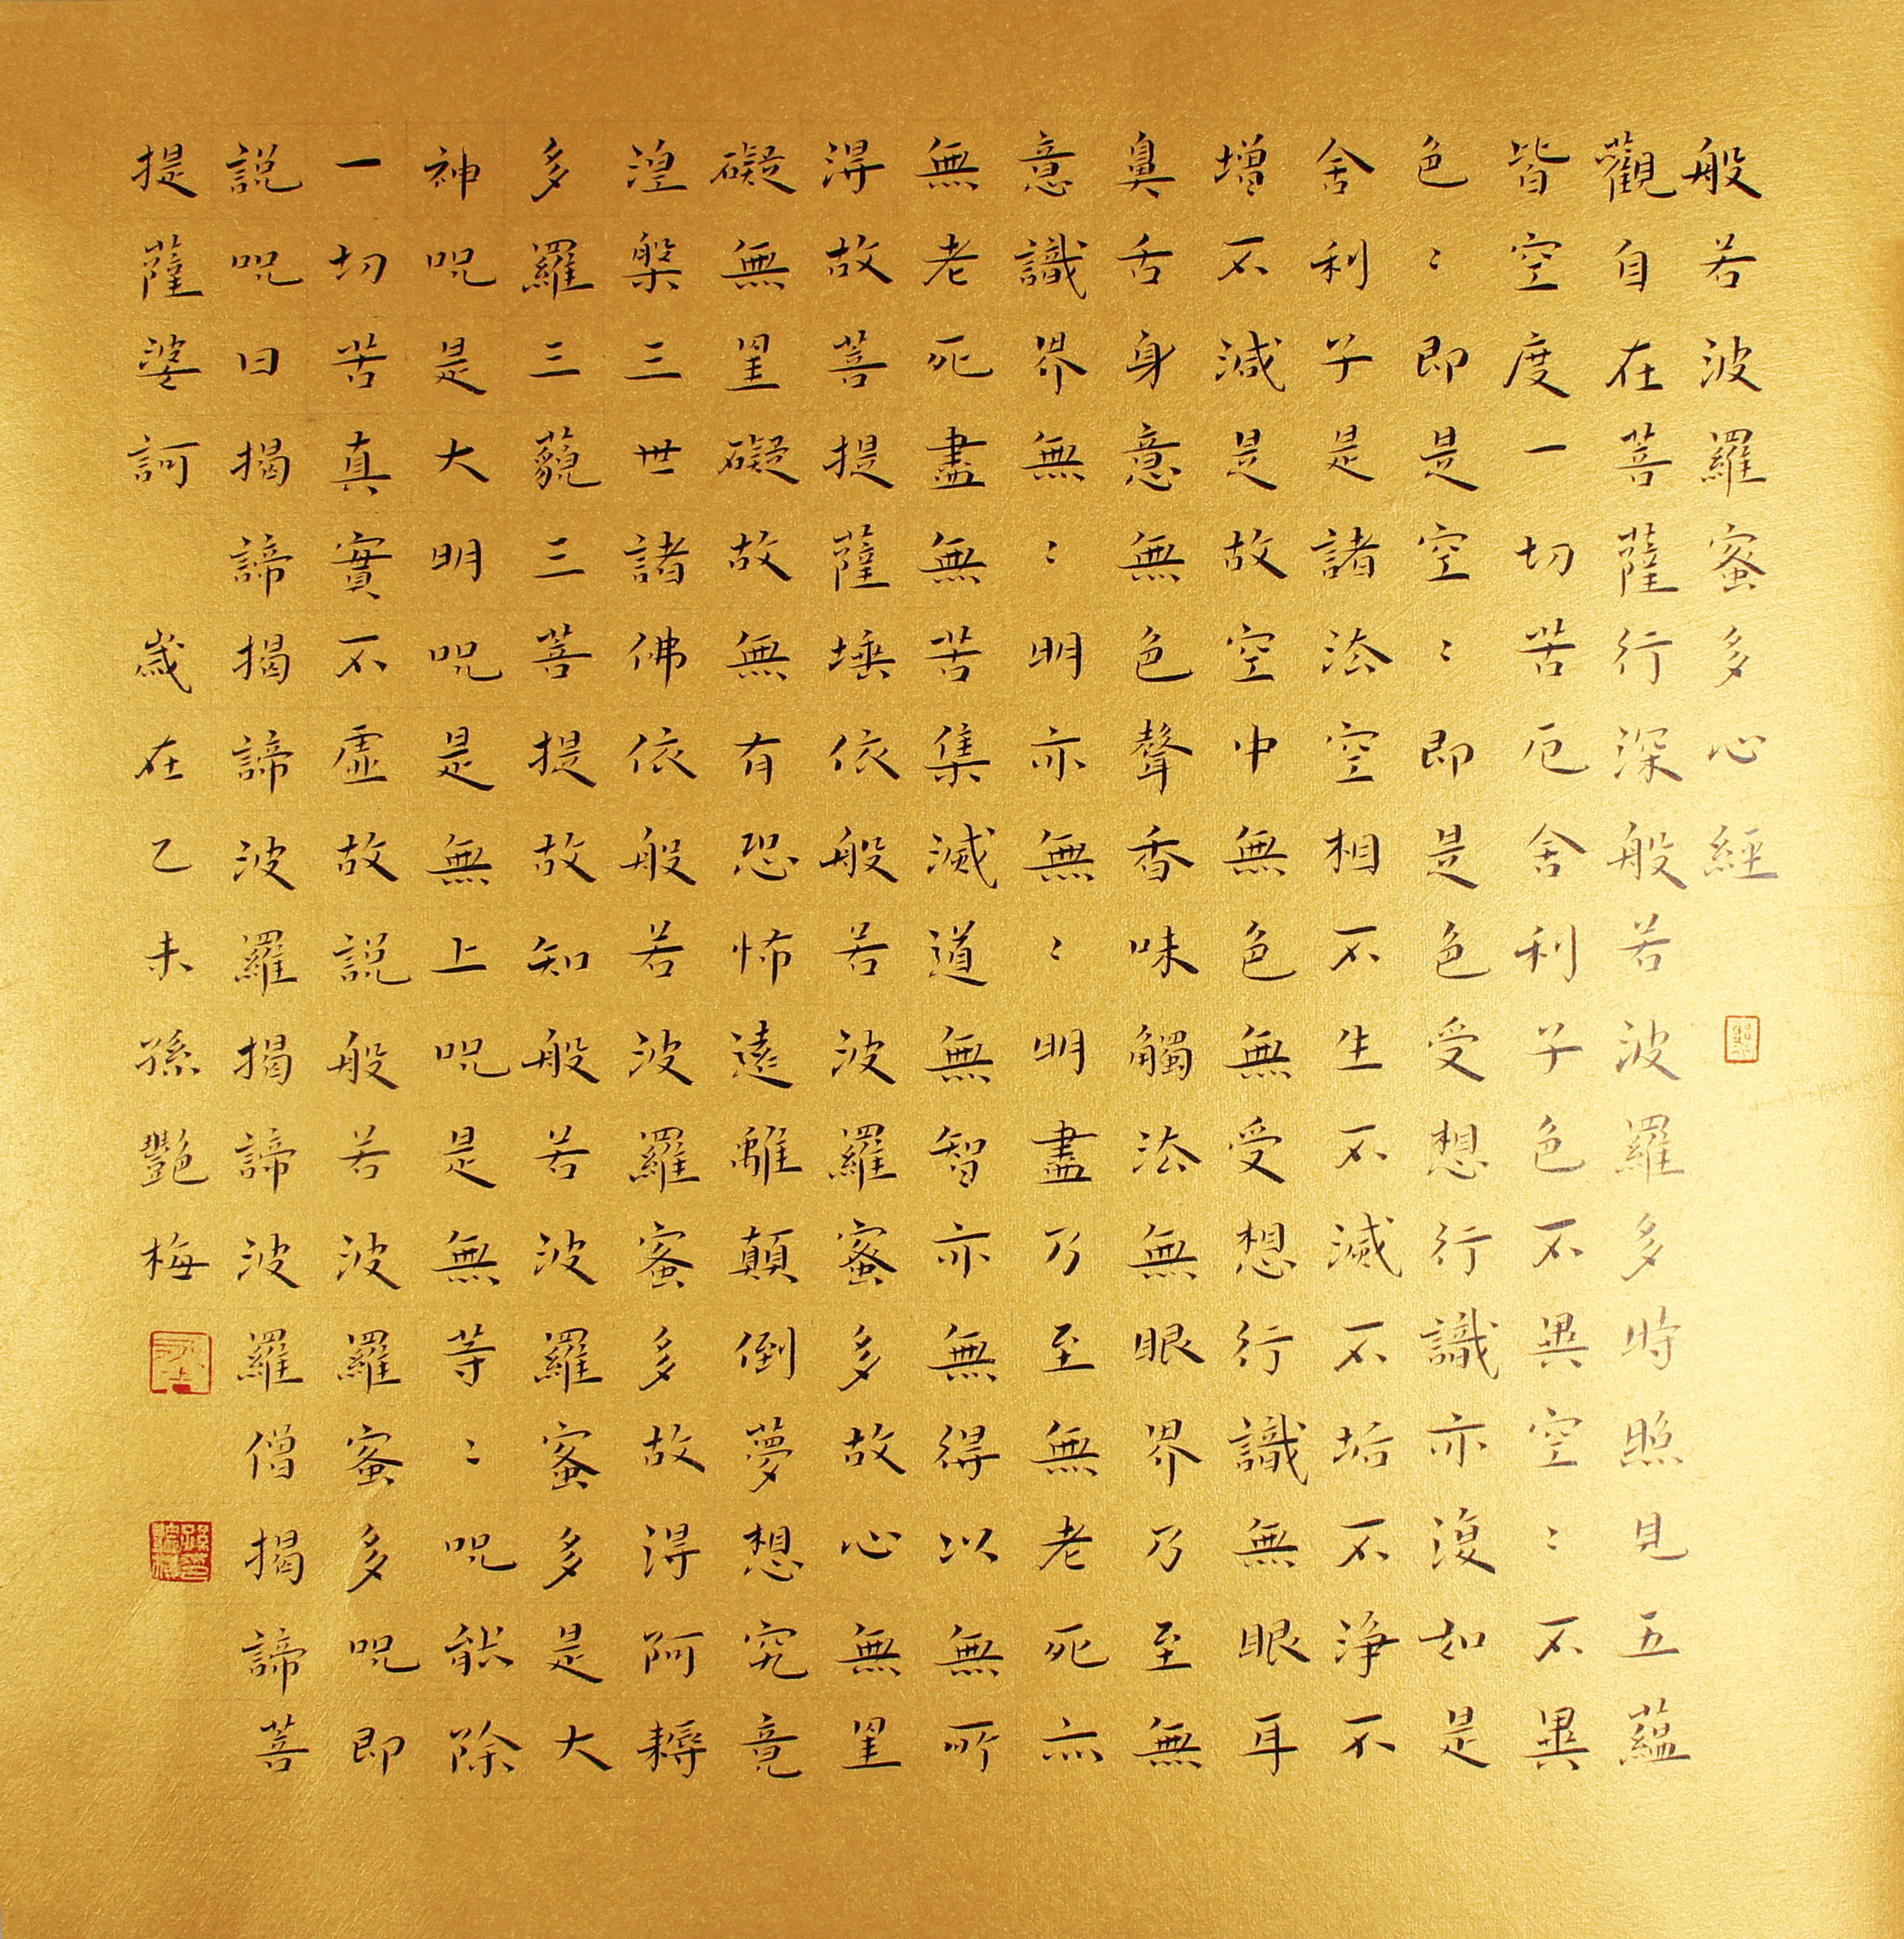 般若波羅蜜多心經
觀自在菩薩行深般若波羅多時照見五蘊
皆空度一切苦厄舍利子色不異空〻不異
色〻即是空〻即是色受想行識亦復如是
舍利子是諸法空相不生不滅不垢不淨不
增不減是故空中無色無受想行識無眼耳
鼻舌身意無色聲香味觸法無眼界乃至無
意識界無〻明亦無〻明盡乃至無老死亦
無老死盡無苦集滅道無智亦無得以無所
得故菩提薩埵依般若波羅蜜多故心無罣
礙無罣礙故無有恐怖遠離顛倒夢想究竟
涅槃三世諸佛依般若波羅蜜多故得阿耨
多羅三藐三菩提故知般若波羅蜜多是大
神咒是大明咒是無上咒是無等〻咒能除
一切苦真實不虛故說般若波羅蜜多咒即
說咒曰揭諦揭諦波羅揭諦波羅僧揭諦菩
提薩婆訶 歲在乙未孫艷梅